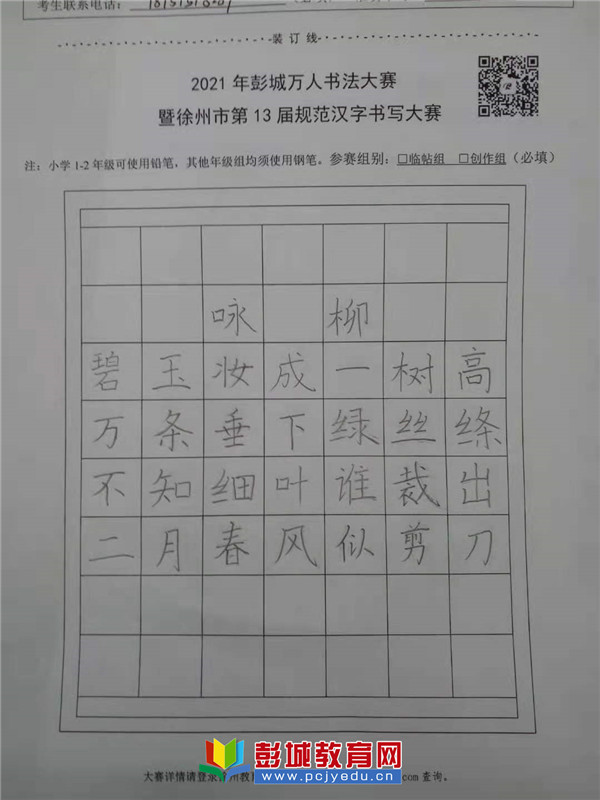 考生联系电话：
装 订 线
2021 年彭城万人书法大赛
暨徐州市第 13 届规范汉字书写大赛
注：小学 1-2 年级可使用铅笔，其他年级组均须使用钢笔。参赛组别：□临帖组 □创作组（必填）
咏柳
碧玉妆成一树高
万条垂下绿丝绦
不知细叶谁裁出
二月春风似剪刀
大赛详情请登录
com 查询。
彭城教育网
www.pcjyedu.cn